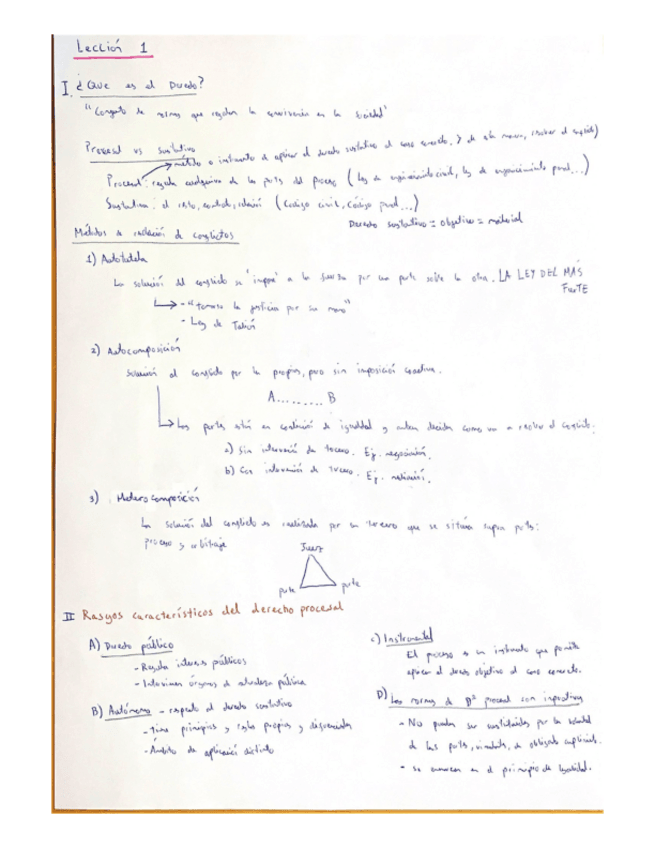 Lección 1
I. ¿Que es el Derecho?
"Conjunto de normas que regulan la convivencia en la sociedad"
Procesal vs sustantivo
método o instrumento de aplicar el derecho sustantivo al caso concreto,
Procesal: regula de las partes del proceso (ley de enjuiciamiento civil, ley de enjuiciamiento penal...)
Sustantivo: el resto, (Código civil, Código penal...)
Derecho sustantivo = objetivo = material
Métodos de resolución de conflictos
1) Autotutela
La solución del conflicto se 'impone' a la fuerza por una parte sobre la otra. LA LEY DEL MÁS
FUERTE
- "tomarse la justicia por su mano"
- Ley de Talión
2) Autocomposición
Solución al conflicto por la propios, pero sin imposición coactiva.
A.........B
Las partes están en condición de igualdad y ambas deciden como va a resolver el conflicto.
a) Sin intervención de tercero. Ej. negociación.
b) Con intervención de tercero. Ej. mediación.
3) Heterocomposición
La solución del conflicto es realizada por un tercero que se sitúa supra partes:
proceso y arbitraje
Juez
parte parte
II Rasgos característicos del derecho procesal
A) Derecho público
- Regula intereses públicos
- Intervienen órganos de naturaleza pública
B) Autónomo - respecto al derecho sustantivo
- tiene principios y reglas propios y diferenciados
- Ámbito de aplicación distinto
c) Instrumental
El proceso es un instrumento que permite
aplicar el derecho objetivo al caso concreto.
D) Las normas de Dº procesal son imperativas
- NO pueden ser sustituidas por la voluntad
de las partes, de obligado
- se en el principio de legalidad.